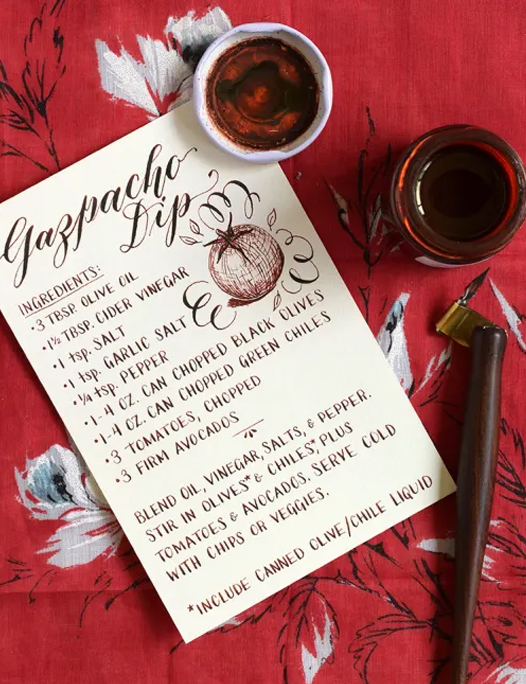 Gazpacho
Dip
INGREDIENTS:
• 3 TBSP. OLIVE OIL
• 1½ TBSP. CIDER VINEGAR
• 1 tsp. SALT
• 1 tsp. GARLIC SALT
• ¼ tsp. PEPPER
• 1- 4 OZ. CAN CHOPPED BLACK OLIVES
• 1- 4 OZ. CAN CHOPPED GREEN CHILES
• 3 TOMATOES, CHOPPED
• 3 FIRM AVOCADOS
BLEND OIL, VINEGAR, SALTS, & PEPPER.
STIR IN OLIVES* & CHILES,* PLUS
TOMATOES & AVOCADOS. SERVE COLD
WITH CHIPS OR VEGGIES.
*INCLUDE CANNED OLIVE/CHILE LIQUID